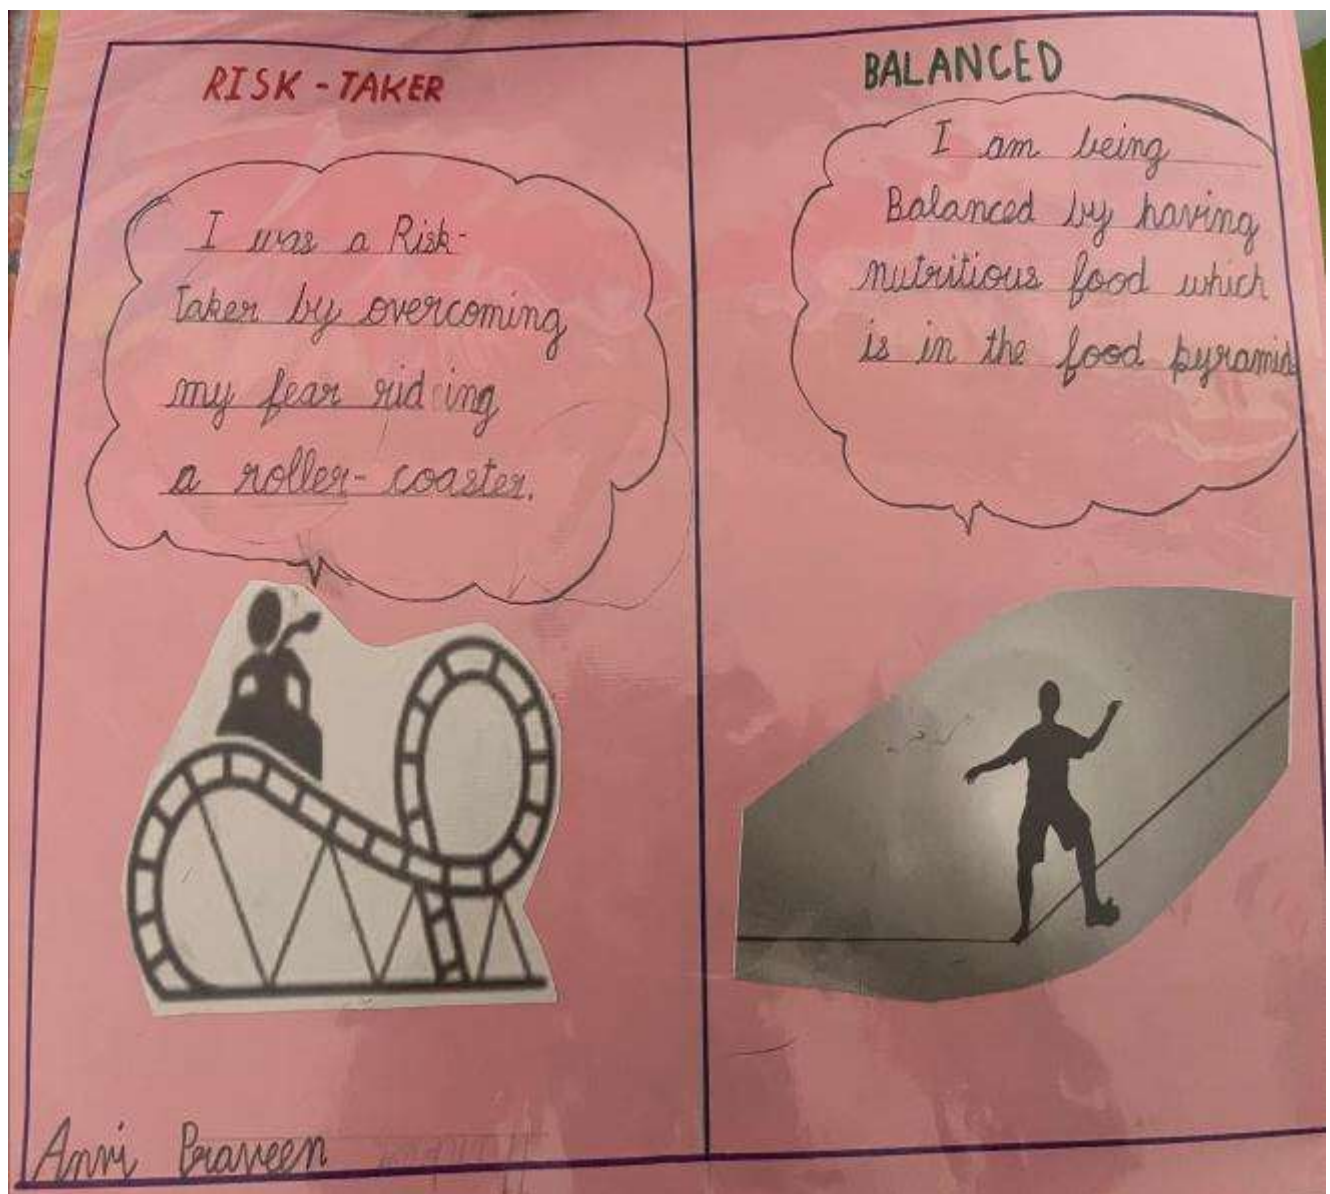 RISK-TAKER
I was a Risk-
taker by overcoming
my fear riding
a roller-coaster.
BALANCED
I am being
Balanced by having
nutritious food which
is in the food pyramid
Praveen